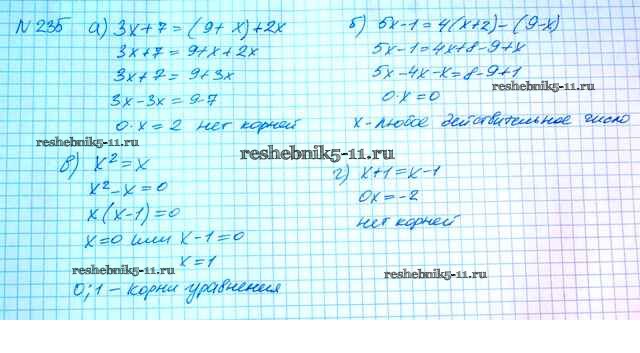 N 235 а) 3x+7=(9+x)+2x
3x+7=9+x+2x
3x+7=9+3x
3x-3x=9-7
0·x=2 нет корней
б) 5x-1=4(x+2)-(9-x)
5x-1=4x+8-9+x
5x-4x-x=8-9+1
0·x=0
x-любое действительное число
в) x²=x
x²-x=0
x(x-1)=0
x=0 или x-1=0
x=1
0;1-корни уравнения
г) x+1=x-1
0x=-2
нет корней
reshebnik5-11.ru
reshebnik5-11.ru
reshebnik5-11.ru
reshebnik5-11.ru
reshebnik5-11.ru